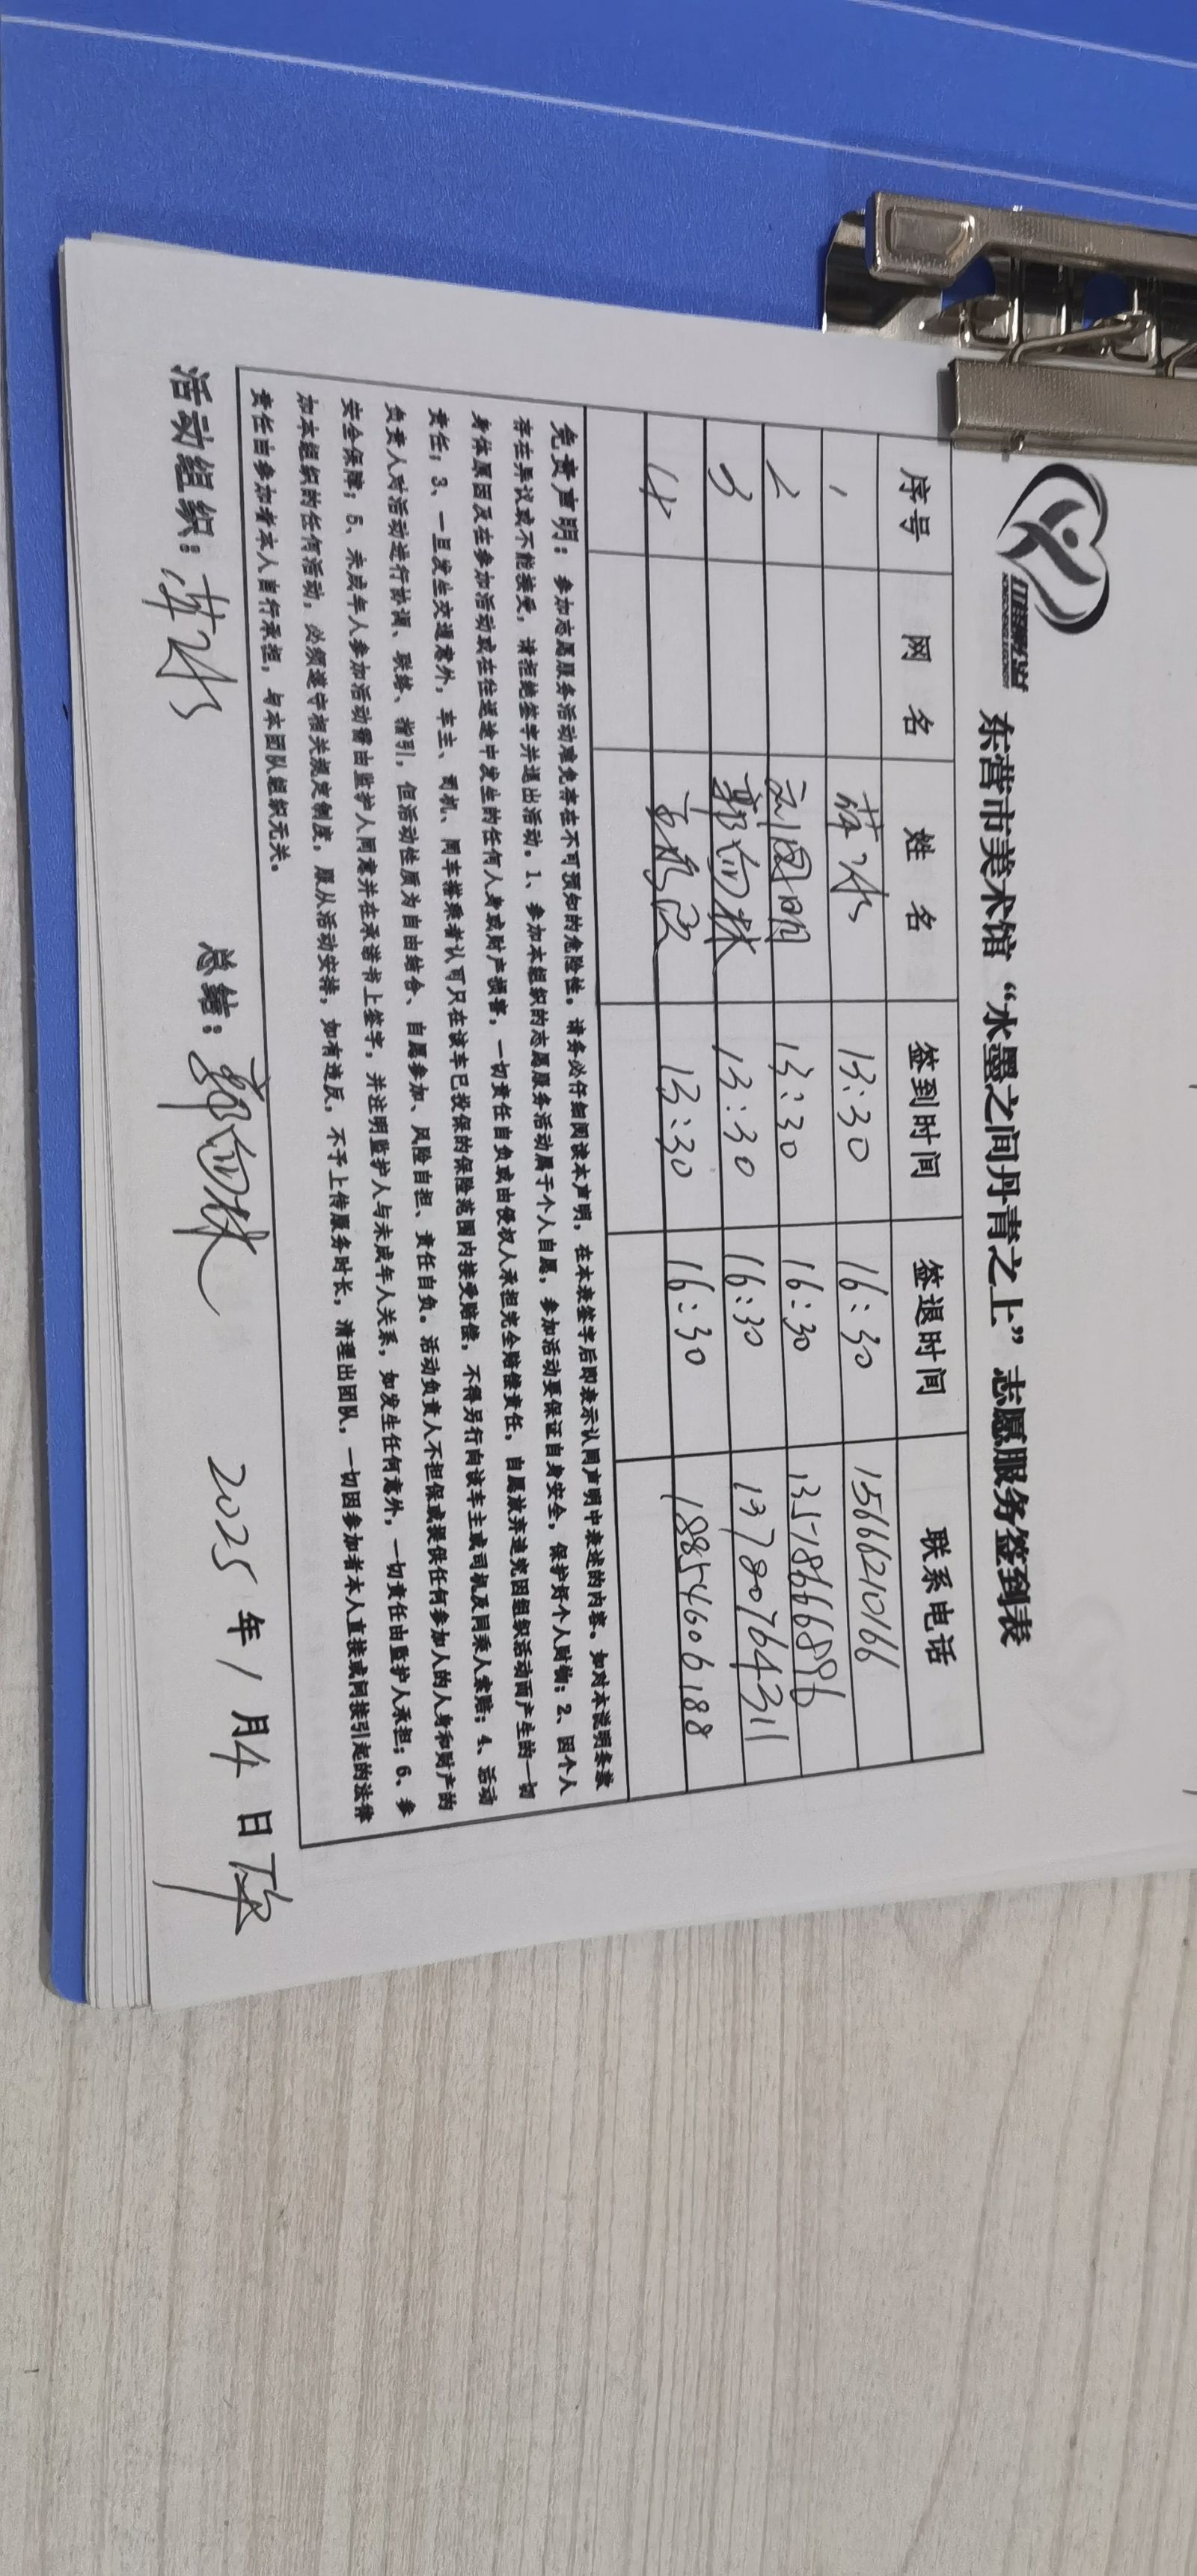 东营市美术馆“水墨之间丹青之上”志愿服务签到表
序号 网名 姓名 签到时间 签退时间 联系电话
1 薛冰 13:30 16:30 15666210166
2 刘国明 13:30 16:30 13578666896
3 郭向林 13:30 16:30 13780764311
4 13:30 16:30 18854606188
免责声明：参加志愿服务活动难免存在不可预知的危险性。请务必仔细阅读本声明，在本表签字后即表示认同声明中表述的内容。如对本说明条款
存在异议或不能接受，请拒绝签字并退出活动。1、参加本组织的志愿服务活动属于个人自愿，参加活动要保证自身安全，保护好个人财物；2、因个人
身体原因及在参加活动或在往返途中发生的任何人身或财产损害，一切责任自负或由侵权人承担完全赔偿责任，自愿放弃追究因组织活动而产生的一切
责任；3、一旦发生交通意外，车主、司机、同车搭乘者认可只在该车已投保的保险范围内接受赔偿，不得另行向该车主或司机及同乘人索赔；4、活动
负责人对活动进行协调、联络、指引，但活动性质为自由结合、自愿参加、风险自担、责任自负。活动负责人不担保或提供任何参加人的人身和财产的
安全保障；5、未成年人参加活动需由监护人同意并在承诺书上签字，并注明监护人与未成年人关系，如发生任何意外，一切责任由监护人承担；6、参
加本组织的任何活动，必须遵守相关规定制度，服从活动安排，如有违反，不予上传服务时长，清理出团队，一切因参加者本人直接或间接引起的法律
责任由参加者本人自行承担，与本团队组织无关。
活动组织：薛冰 总结：郭向林 2025年1月4日